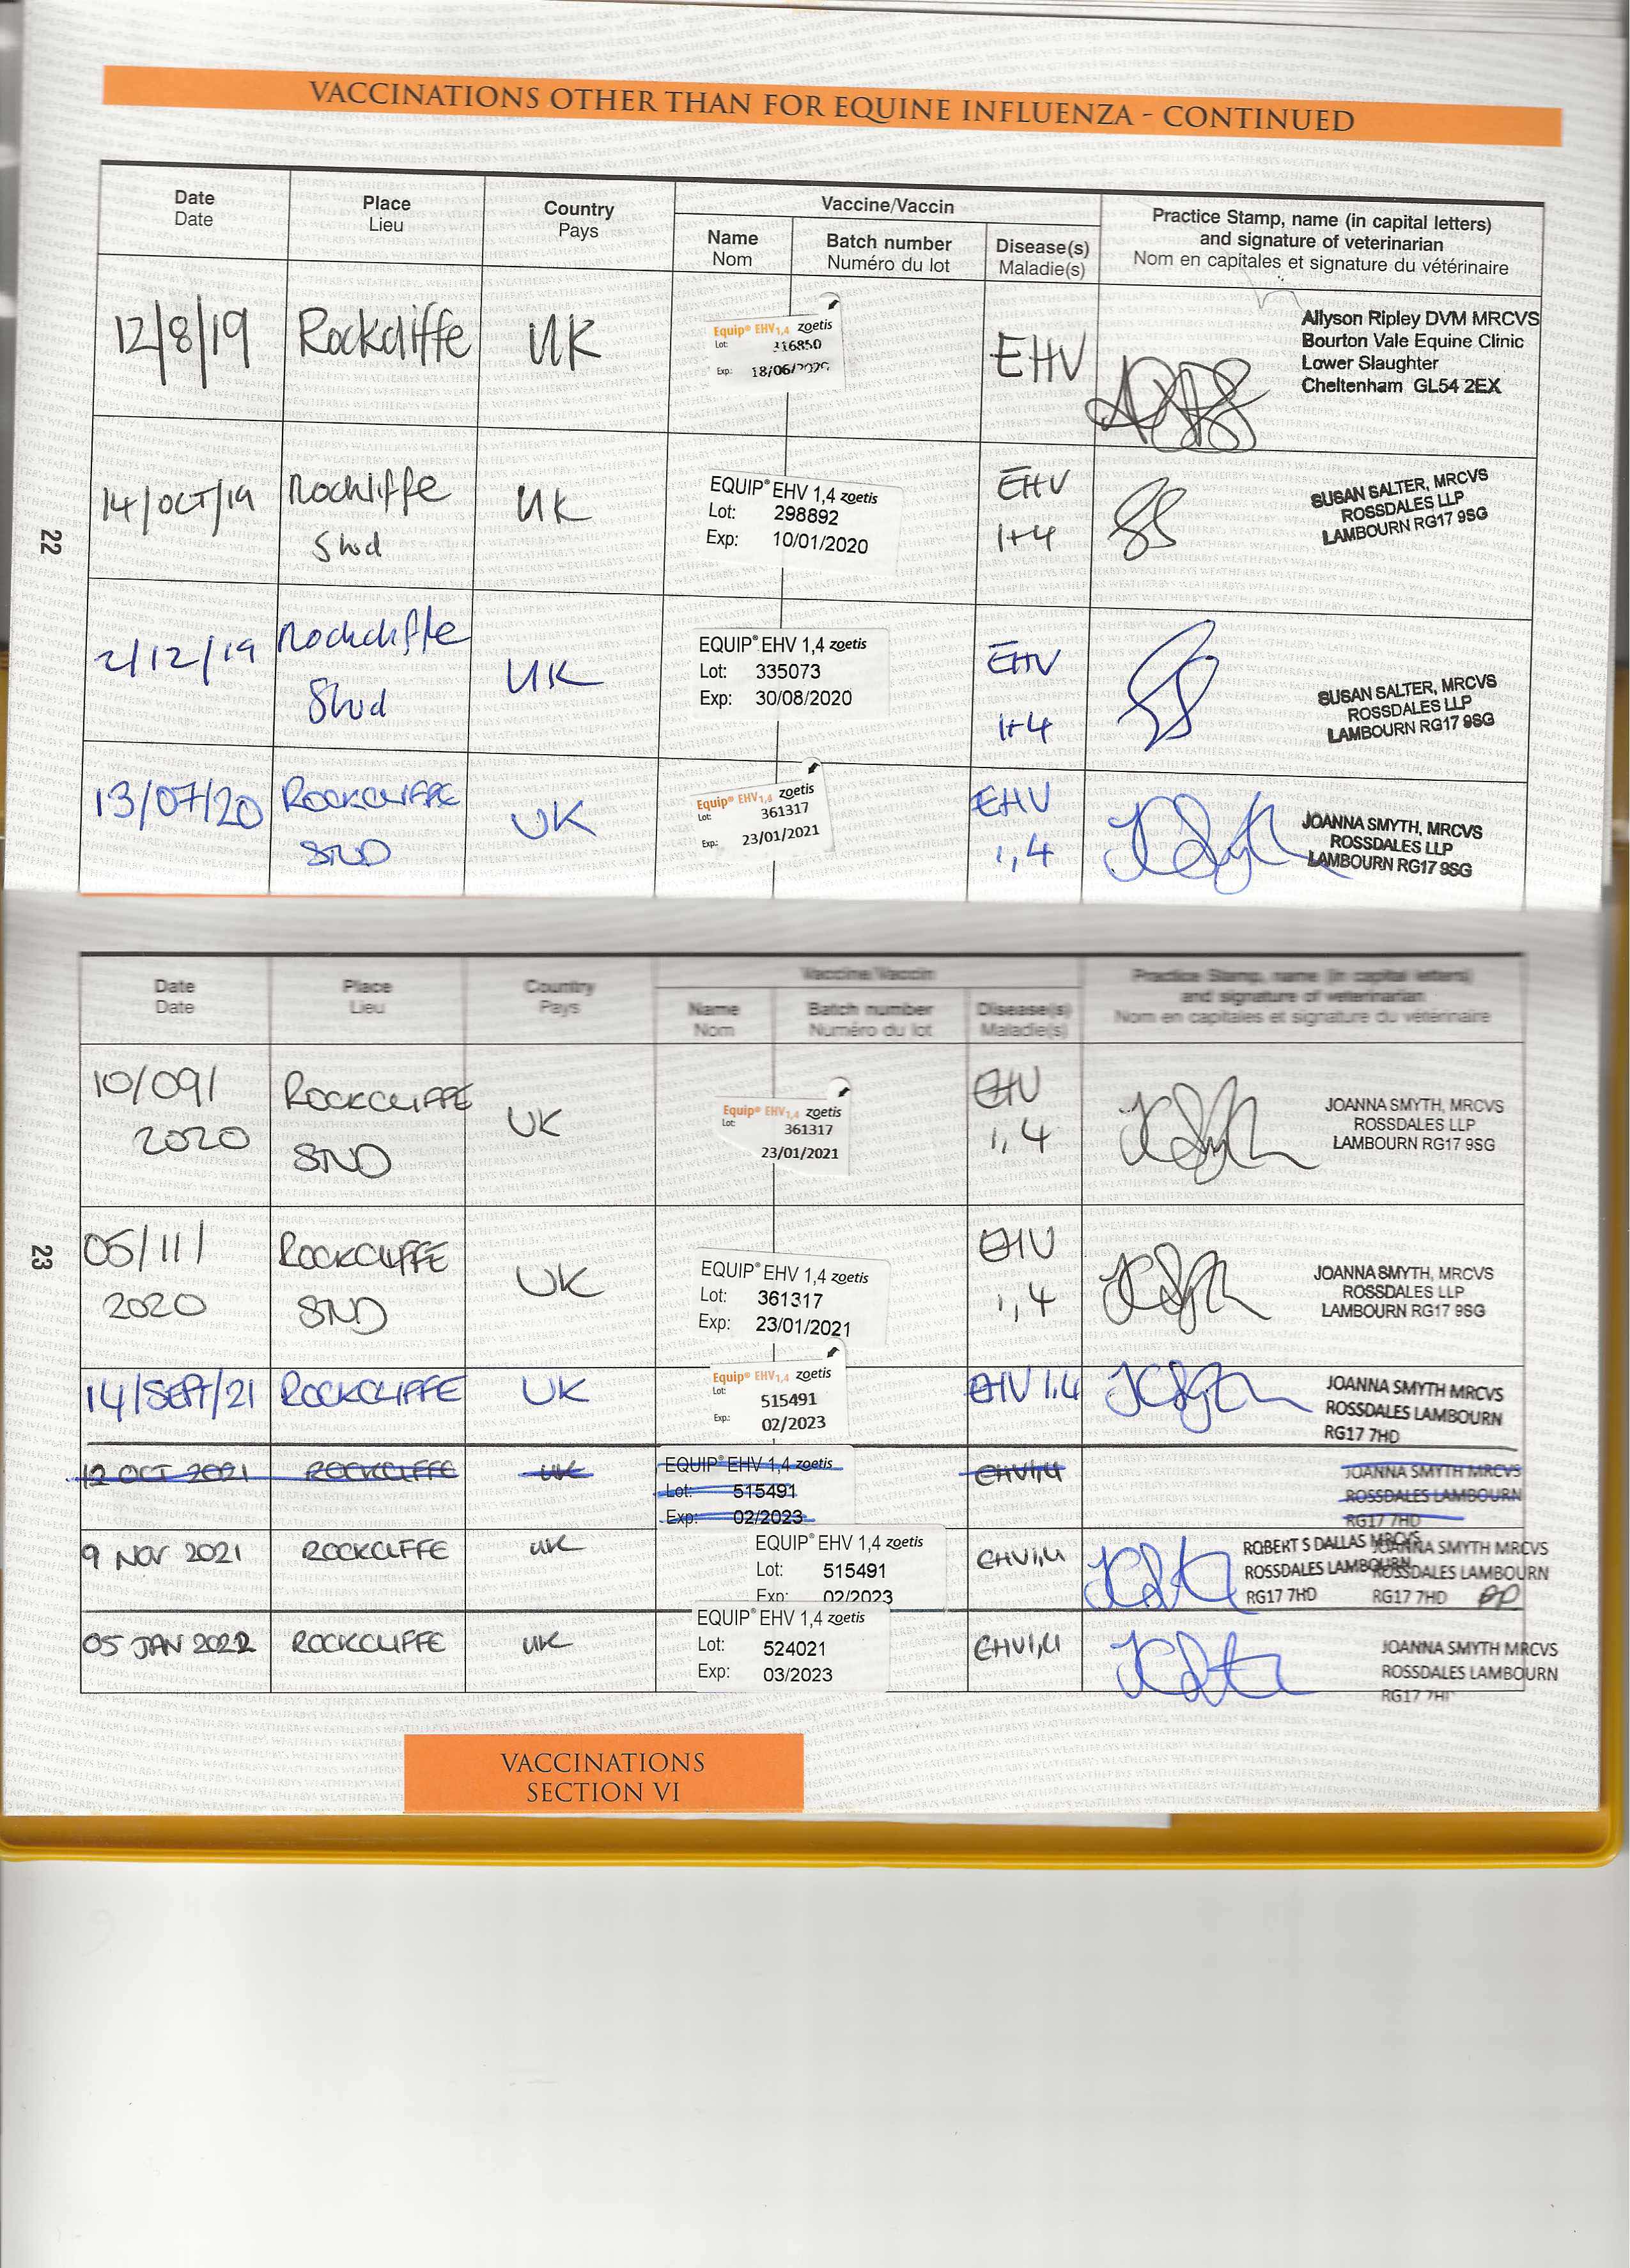 VACCINATIONS OTHER THAN FOR EQUINE INFLUENZA - CONTINUED
Date
Date
Place
Lieu
Country
Pays
Vaccine/Vaccin
Name
Nom
Batch number
Numéro du lot
Disease(s)
Maladie(s)
Practice Stamp, name (in capital letters)
and signature of veterinarian
Nom en capitales et signature du vétérinaire
12/8/19
Rockcliffe
UK
Equip® EHV1,4 zoetis
Lot: 316850
Exp: 18/06/2020
EHV
Allyson Ripley DVM MRCVS
Bourton Vale Equine Clinic
Lower Slaughter
Cheltenham GL54 2EX
22
14/OCT/19
Rockliffe
Stud
UK
EQUIP® EHV 1,4 zoetis
Lot: 298892
Exp: 10/01/2020
EHV
1+4
SUSAN SALTER, MRCVS
ROSSDALES LLP
LAMBOURN RG17 9SG
2/12/19
Rockcliffe
Stud
UK
EQUIP® EHV 1,4 zoetis
Lot: 335073
Exp: 30/08/2020
EHV
1+4
SUSAN SALTER, MRCVS
ROSSDALES LLP
LAMBOURN RG17 9SG
13/07/20
ROCKCLIFFE
STUD
UK
Equip® EHV1,4 zoetis
Lot: 361317
Exp: 23/01/2021
EHV
1,4
JOANNA SMYTH, MRCVS
ROSSDALES LLP
LAMBOURN RG17 9SG
Date
Date
Place
Lieu
Country
Pays
Vaccine/Vaccin
Name
Nom
Batch number
Numéro du lot
Disease(s)
Maladie(s)
Practice Stamp, name (in capital letters)
and signature of veterinarian
Nom en capitales et signature du vétérinaire
10/09/
2020
ROCKCLIFFE
STUD
UK
Equip® EHV1,4 zoetis
Lot: 361317
23/01/2021
EHV
1,4
JOANNA SMYTH, MRCVS
ROSSDALES LLP
LAMBOURN RG17 9SG
23
05/11/
2020
ROCKCLIFFE
STUD
UK
EQUIP® EHV 1,4 zoetis
Lot: 361317
Exp: 23/01/2021
EHV
1,4
JOANNA SMYTH, MRCVS
ROSSDALES LLP
LAMBOURN RG17 9SG
14/SEPT/21
ROCKCLIFFE
UK
Equip® EHV1,4 zoetis
Lot: 515491
Exp.: 02/2023
EHV 1,4
JOANNA SMYTH MRCVS
ROSSDALES LAMBOURN
RG17 7HD
12 OCT 2021
ROCKCLIFFE
UK
EQUIP® EHV 1,4 zoetis
Lot: 515491
Exp: 02/2023
EHV1,4
JOANNA SMYTH MRCVS
ROSSDALES LAMBOURN
RG17 7HD
9 NOV 2021
ROCKCLIFFE
UK
EQUIP® EHV 1,4 zoetis
Lot: 515491
Exp: 02/2023
EHV1,4
ROBERT S DALLAS MRCVS
ROSSDALES LAMBOURN
RG17 7HD
JOANNA SMYTH MRCVS
ROSSDALES LAMBOURN
RG17 7HD
05 JAN 2022
ROCKCLIFFE
UK
EQUIP® EHV 1,4 zoetis
Lot: 524021
Exp: 03/2023
EHV1,4
JOANNA SMYTH MRCVS
ROSSDALES LAMBOURN
RG17 7HD
VACCINATIONS
SECTION VI